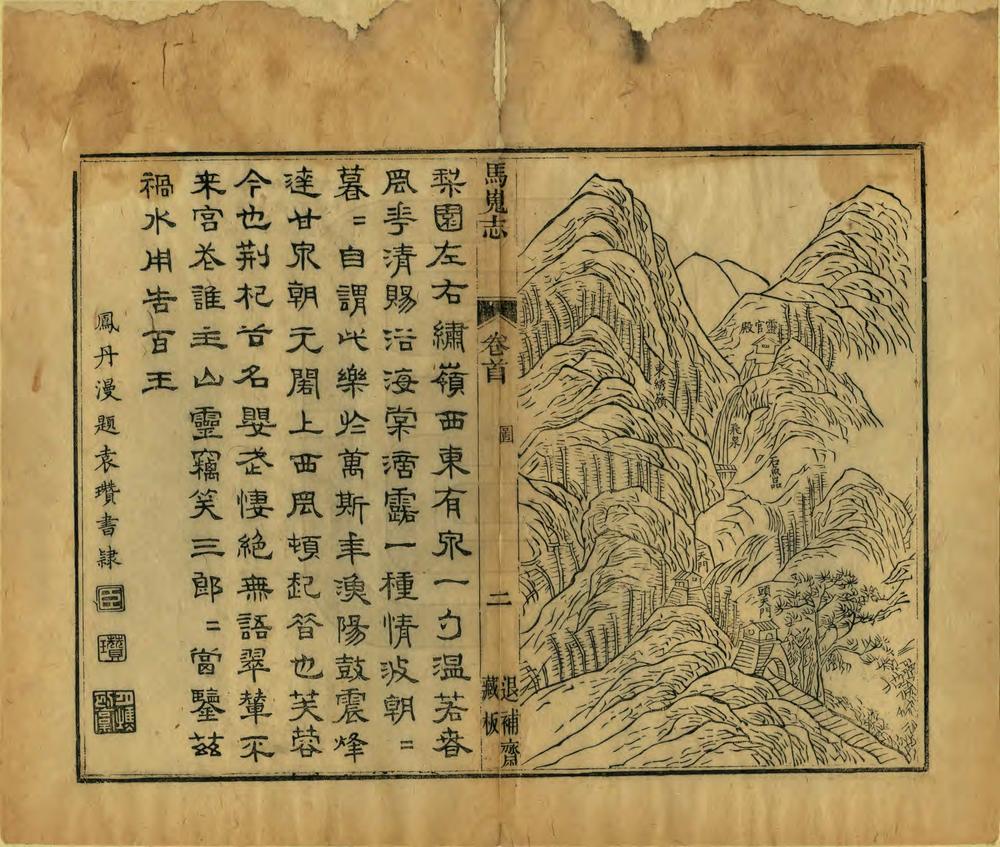 靈官殿
東綉嶺
飛泉
石魚品
二天門
頭天門
馬嵬志
卷首
圖
二
退補齋
藏板
梨園左右繡嶺西東有泉一勺溫若春
風華清賜浴海棠濡露一種情波朝〻
暮〻自謂此樂於萬斯年漁陽鼓震烽
達甘泉朝元閣上西風頓起昔也芙蓉
今也荆杞谷名嬰武悽絶無語翠輦不
来宮花誰主山靈竊笑三郎〻當鑒茲
禍水用告百王
鳳丹漫題袁瓚書隸
臣
瓚